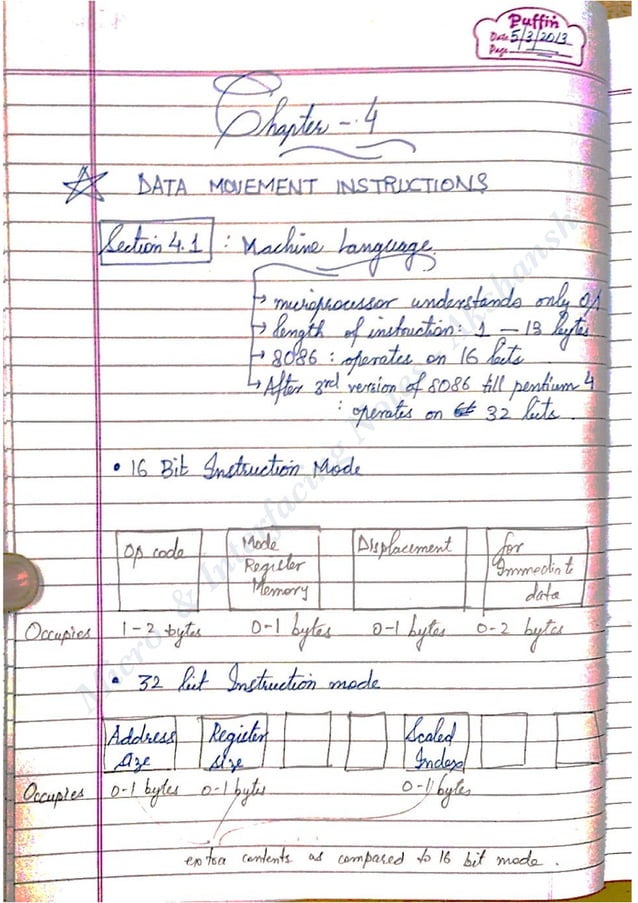 Puffin
Date 5/3/2013
Page
Chapter - 4
DATA MOVEMENT INSTRUCTIONS
Section 4.1 : Machine Language
→ microprocessor understands only 0/1
→ length of instruction: 1 - 13 bytes
→ 8086 : operates on 16 bits
→ After 3rd version of 8086 till pentium 4
: operates on 32 bits.
• 16 Bit Instruction Mode
Op code
Mode
Register
Memory
Displacement
for
Immediate
data
Occupies 1-2 bytes 0-1 bytes 0-1 bytes 0-2 bytes
• 32 bit Instruction mode
Address
size
Register
size
Scaled
Index
Occupies 0-1 bytes 0-1 bytes 0-1 bytes
extra contents as compared to 16 bit mode.
Micro. & Interfacing Notes - Akshansh